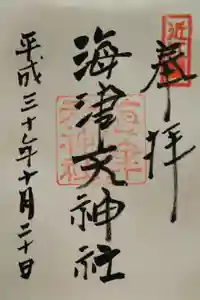 奉拝
海津天神社
平成三十年十月二十日